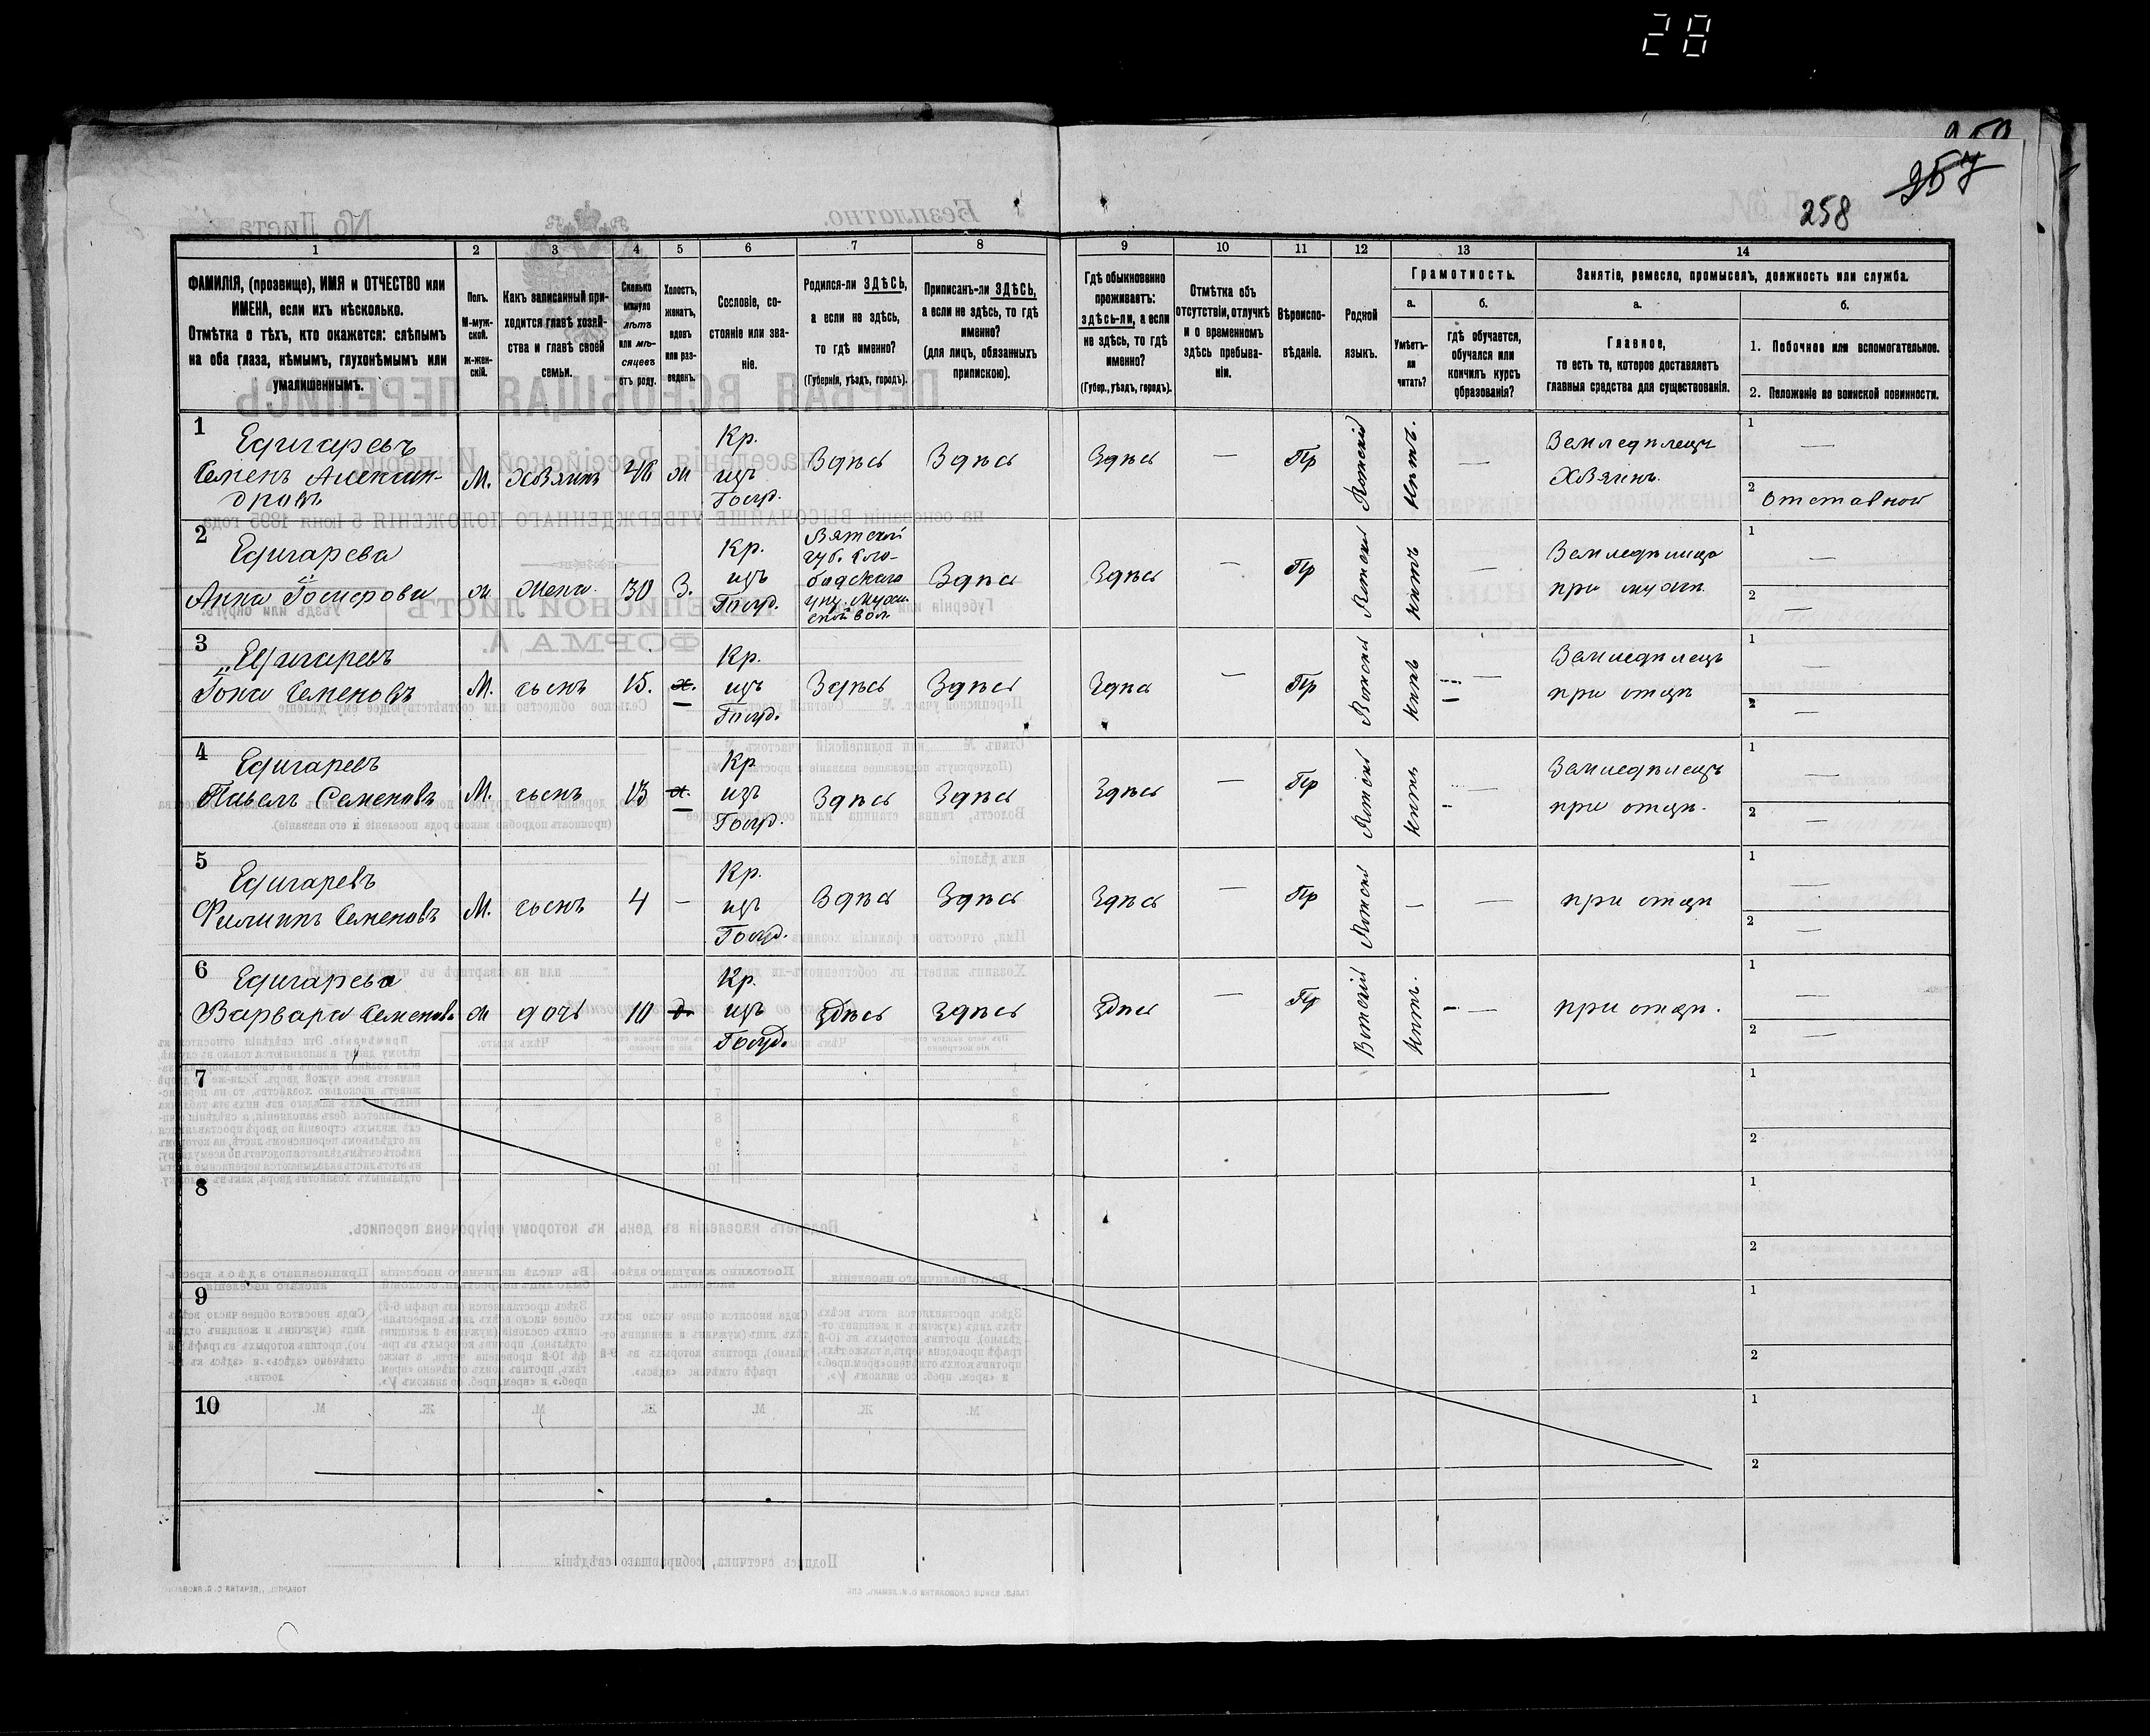 28
257
258
1 2 3 4 5 6 7 8 9 10 11 12 13 14
ФАМИЛІЯ, (прозвище), ИМЯ и ОТЧЕСТВО или
ИМЕНА, если ихъ нѣсколько.
Отмѣтка о тѣхъ, кто окажется: слѣпымъ
на оба глаза, нѣмымъ, глухонѣмымъ или
умалишеннымъ.
Полъ.
М-муж-
ской.
ж-жен-
скій.
Какъ записанный при-
ходится главѣ хозяй-
ства и главѣ своей
семьи.
Сколько
минуло
лѣтъ
или мѣ-
сяцевъ
отъ роду.
Холостъ,
женатъ,
вдовъ
или раз-
веденъ.
Сословіе, со-
стояніе или зва-
ніе.
Родился-ли ЗДѢСЬ,
а если не здѣсь,
то гдѣ именно?
(Губернія, уѣздъ, городъ).
Приписанъ-ли ЗДѢСЬ,
а если не здѣсь, то гдѣ
именно?
(для лицъ, обязанныхъ
припискою).
Гдѣ обыкновенно
проживаетъ:
здѣсь-ли, а если
не здѣсь, то гдѣ
именно?
(Губер., уѣздъ, городъ).
Отмѣтка объ
отсутствіи, отлучкѣ
и о временномъ
здѣсь пребыва-
ніи.
Вѣроиспо-
вѣданіе.
Родной
языкъ.
Грамотность.
а.
Умѣетъ-
ли
читать?
б.
гдѣ обучается,
обучался или
кончилъ курсъ
образованія?
Занятіе, ремесло, промыселъ, должность или служба.
а.
Главное,
то есть то, которое доставляетъ
главныя средства для существованія.
б.
1. Побочное или вспомогательное.
2. Положеніе по воинской повинности.
1
Ефигаревъ
Семенъ Алексан-
дровъ
М.
Хозяинъ
48
ж
Кр.
изъ
Госуд.
Здѣсь
Здѣсь
Здѣсь
—
Пр
Вотскій
Нѣтъ.
—
Земледѣлецъ
Хозяинъ.
1 —
2 отставной
2
Ефигарева
Анна Іосифова
ж
Жена
30
З.
Кр.
изъ
Госуд.
Вятской
губ. Сло-
бодскаго
Здѣсь
Здѣсь
—
Пр
Вотскій
Нѣтъ
—
при мужѣ.
1 —
2 —
3
Ефигаревъ
Іона Семеновъ
М.
сынъ
15.
х.
Кр.
изъ
Госуд.
Здѣсь
Здѣсь
Здѣсь
—
Пр
Вотскій
Нѣтъ
—
Земледѣлецъ
при отцѣ
1 —
2 —
4
Ефигаревъ
Павелъ Семеновъ
М.
сынъ
13
х.
Кр
изъ
Госуд.
Здѣсь
Здѣсь
Здѣсь
—
Пр
Вотскій
Нѣтъ
—
Земледѣлецъ
при отцѣ.
1 —
2 —
5
Ефигаревъ
Филиппъ Семеновъ
М.
сынъ
4
—
Кр.
изъ
Госуд.
Здѣсь
Здѣсь
Здѣсь
—
Пр
Вотскій
—
—
при отцѣ
1 —
2 —
6
Ефигарева
Варвара Семенова
ж
дочь
10
д.
Кр.
изъ
Госуд.
Здѣсь
Здѣсь
Здѣсь
—
Пр
Вотскій
Нѣтъ.
—
при отцѣ.
1 —
2 —
7
1
2
8
1
2
9
1
2
10
1
2